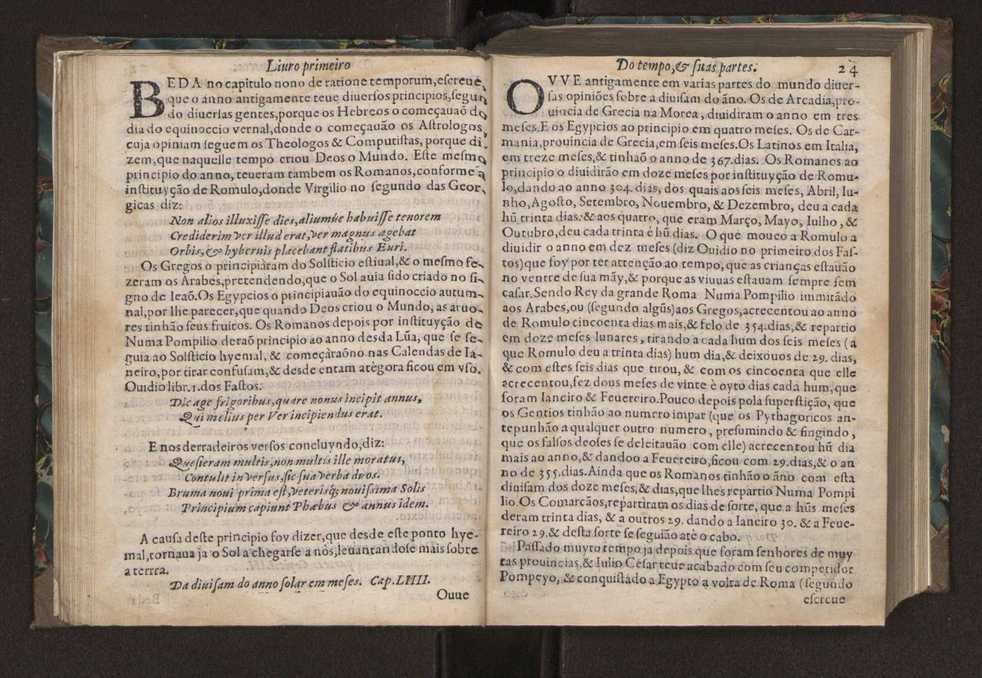 Liuro primeiro
BEDA no capitulo nono de ratione temporum, escreue,
que o anno antigamente teue diuersos principios, segun
do diuersas gentes, porque os Hebreos o começauaõ do
dia do equinoccio vernal, donde o começauão os Astrologos,
cuja opiniam seguem os Theologos & Computistas, porque di
zem, que naquelle tempo criou Deos o Mundo. Este mesmo
principio do anno, teueram tambem os Romanos, conforme a
instituyção de Romulo, donde Virgilio no segundo das Geor
gicas diz:
Non alios illuxisse dies, aliumúe habuisse tenorem
Crediderim ver illud erat, ver magnus agebat
Orbis, & hybernis placebant flatibus Euri.
Os Gregos o principiàram do Solsticio estiual, & o mesmo fe-
zeram os Arabes, pretendendo, que o Sol auia sido criado no si-
gno de leaõ. Os Egypcios o principiauão do equinoccio autum-
nal, por lhe parecer, que quando Deos criou o Mundo, as aruo-
res tinhão seus fruitos. Os Romanos depois por instituyção de
Numa Pompilio deraõ principio ao anno desda Lũa, que se se-
guia ao Solsticio hyenial, & começàraõno nas Calendas de Ia-
neiro, por tirar confusam, & desde entam atègora ficou em vso.
Ouidio libr. 1. dos Fastos.
Dic age frigoribus, quare nonus incipit annus,
Qui melius per Ver incipiendus erat.
E nos derradeiros versos concluyndo, diz:
Quesieram multis, non multis ille moratus,
Contulit in versus, sic sua verba duos.
Bruma noui prima est, veterisq; nouissima Solis
Principium capiunt Phœbus & annus idem.
A causa deste principio foy dizer, que desde este ponto hye-
mal, tornaua ja o Sol a chegarse a nòs, leuantandose mais sobre
a terra.
Da diuisam do anno solar em meses. Cap. LIIII.
Ouue
Do tempo, & suas partes. 24
OVVE antigamente em varias partes do mundo diuer-
sas opiniões sobre a diuisam do ãno. Os de Arcadia, pro-
uincia de Grecia na Morea, diuidiram o anno em tres
meses. E os Egypcios ao principio em quatro meses. Os de Car-
mania, prouincia de Grecia, em seis meses. Os Latinos em Italia,
em treze meses, & tinhaõ o anno de 367. dias. Os Romanos ao
principio o diuidirão em doze meses por instituyção de Romu-
lo, dando ao anno 304. dias, dos quais aos seis meses, Abril, Iu-
nho, Agosto, Setembro, Nouembro, & Dezembro, deu a cada
hũ trinta dias. & aos quatro, que eram Março, Mayo, Iulho, &
Outubro, deu cada trinta é hũ dias. O que moueo a Romulo a
diuidir o anno em dez meses (diz Ouidio no primeiro dos Fas-
tos) que foy por ter attenção ao tempo, que as crianças estauão
no ventre de sua mãy, & porque as viuuas estauam sempre sem
casar. Sendo Rey da grande Roma Numa Pompilio immitãdo
aos Arabes, ou (segundo algũs) aos Gregos, acrecentou ao anno
de Romulo cincoenta dias mais, & felo de 354. dias, & repartio
em doze meses lunares, tirando a cada hum dos seis meses (a
que Romulo deu a trinta dias) hum dia, & deixouos de 29. dias,
& com estes seis dias que tirou, & com os cincoenta que elle
acrecentou, fez dous meses de vinte è oyto dias cada hum, que
foram Ianeiro & Feuereiro. Pouco depois pola superstição, que
os Gentios tinhão ao numero impar (que os Pythagoricos an-
tepunhão a qualquer outro numero, presumindo & fingindo,
que os falsos deoses se deleitauão com elle) acrecentou hũ dia
mais ao anno, & dandoo a Feuereiro, ficou com 29. dias, & o an
no de 355. dias. Ainda que os Romanos tinhão o ãno com esta
diuisam dos doze meses, & dias, que lhes repartio Numa Pompi
lio. Os Comarcãos, repartiram os dias de sorte, que a hũs meses
deram trinta dias, & a outros 29. dando a Ianeiro 30. & a Feue-
reiro 29. & desta sorte se seguião atè o cabo.
Passado muyto tempo ja depois que foram senhores de muy
tas prouincias, & Iulio Cesar teue acabado com seu competidor
Pompeyo, & conquistado a Egypto a volta de Roma (segundo
escreue